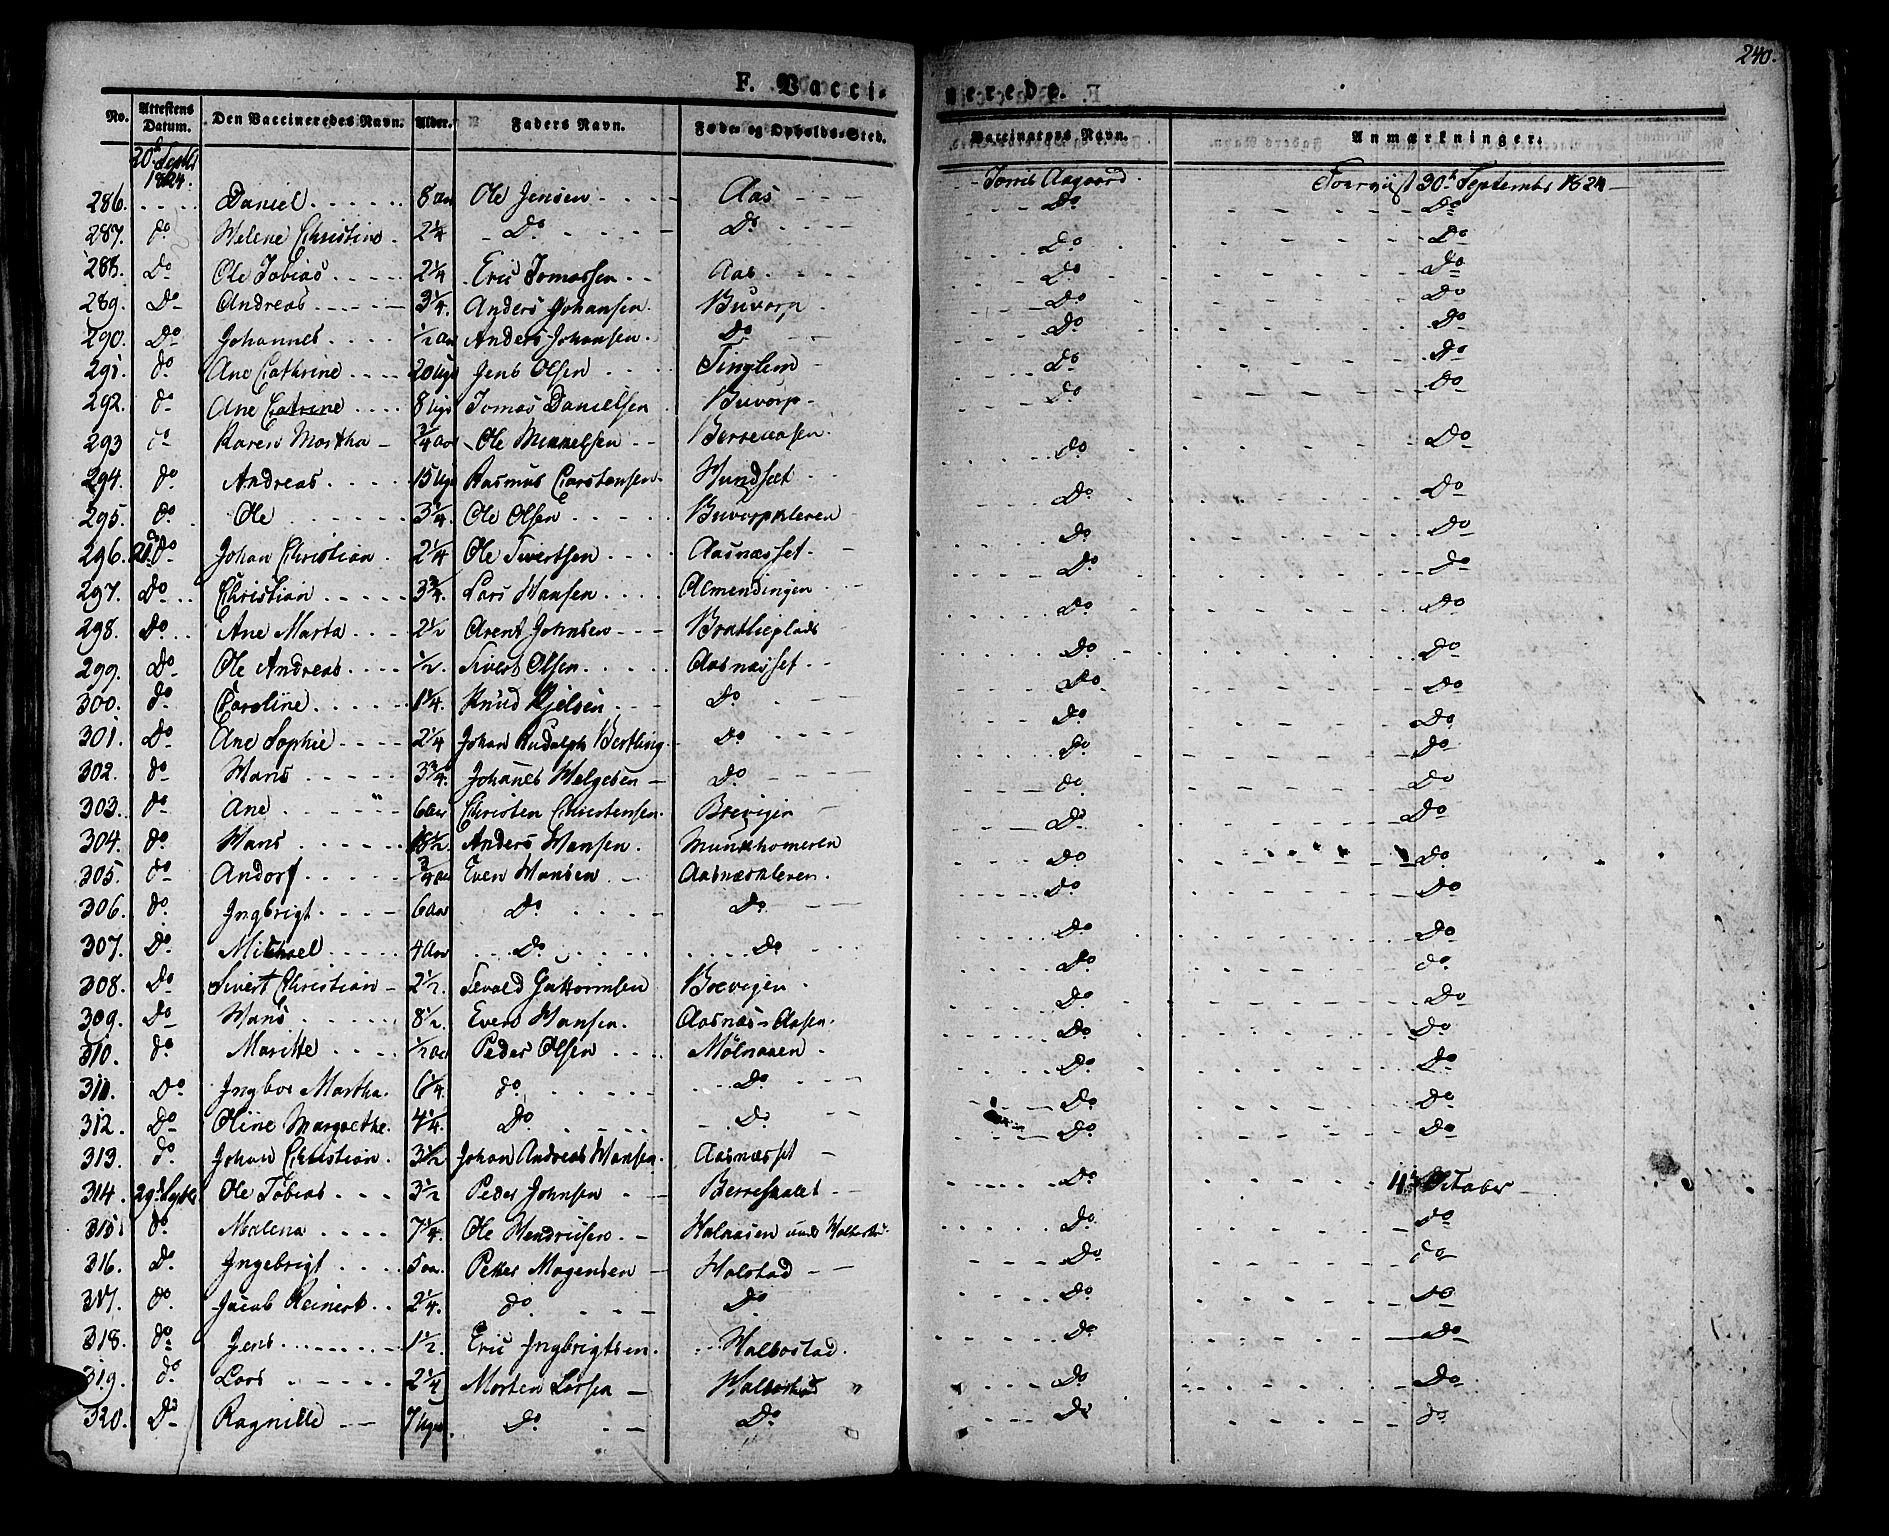 240.
F. Vaccinerede.
No. Attestens Datum. Den Vaccineredes Navn. Alder. Faders Navn. Føde- og Opholds-Sted. Vaccinators Navn. Anmærkninger.
20de Septbr 1824
286. Daniel 8 Aar Ole Jensen Aas Aagaard 30te September 1824
287. do Helene Christine 2 1/4 Do Do Do Do
288. Do Ole Tobias 2 1/4 Eric Tomassen Aas Do Do
289. Do Andreas 3 1/4 Anders Johansen Buvarp Do Do
290. Do Johannes 1/2 Aar Anders Johansen Do Do Do
291. do Ane Cathrine 20 Uger Jens Olsen Tinglem Do Do
292. do Ane Catrine 8 Uger Tomas Danielsen Buvarp Do Do
293 do Karen Martha 3/4 Aar Ole Mikkelsen Do Do
294. do Andreas 15 Uger Rasmus Carstensen Hundsæt Do Do
295. do Ole 3 1/4 Ole Olsen Buvarpkleven Do Do
296. 21 do Johan Christian 2 1/4 Ole Sivertsen Aasnæsset Do Do
297. Do Christian 3 3/4 Lars Hansen Almendingen Do Do
298. Do Ane Marta 2 1/2 Arent Johnsen Bratlieplads Do Do
299. Do Ole Andreas 1/2 Sivert Olsen Aasnæsset Do Do
300. do Caroline 1 1/4 Knud Kjelsen Do Do Do
301. Do Ane Sophie 2 1/4 Johan Rudolph Bertling Do Do Do
302. do Hans 3 3/4 Johanes Helgesen Do Do Do
303. do Ane 6 Aar Christen Christensen Brevigen do Do
304. do Hans 18 1/2 Anders Hansen Munkhomeren Do Do
305. do Andorf 3/4 Aar Even Hansen Aasnæskleven Do Do
306. do Ingbrigt 6 Aar Do Do Do Do
307. Do Michael 4 Aar Do Do Do Do
308. Do Sivert Christian 2 1/2 Sevald Guttormsen Brevigen Do do
309. Do Hans 8 1/2 Even Hansen Aasnæs-Aasen Do Do
310. do Maritte 1/2 Aar Peder Olsen Mølnaaen Do Do
311. Do Ingbor Martha 6 1/4 do Do Do Do
312. Do Oline Margrethe 4 1/4 Do Do Do Do
313. do Johan Christian 3 1/2 Johan Andreas Hansen Aasnæsset Do Do
314. 29de Septbr Ole Tobias 3 1/2 Peder Johnsen Do October
315 do Malena 7 1/4 Ole Hendricsen Do Do
316. Do Ingebrigt 5 aar Petter Mogensen Halstad Do do
317. do Jacob Reinert 2 1/4 do Do Do Do
318. do Jens 1 1/2 Eric Ingbrigtsen Halbostad Do Do
319. do Lars 2 1/4 Morten Larsen Halbostad Do Do
320. Do Ragnilde 7 Uger Do Do Do do